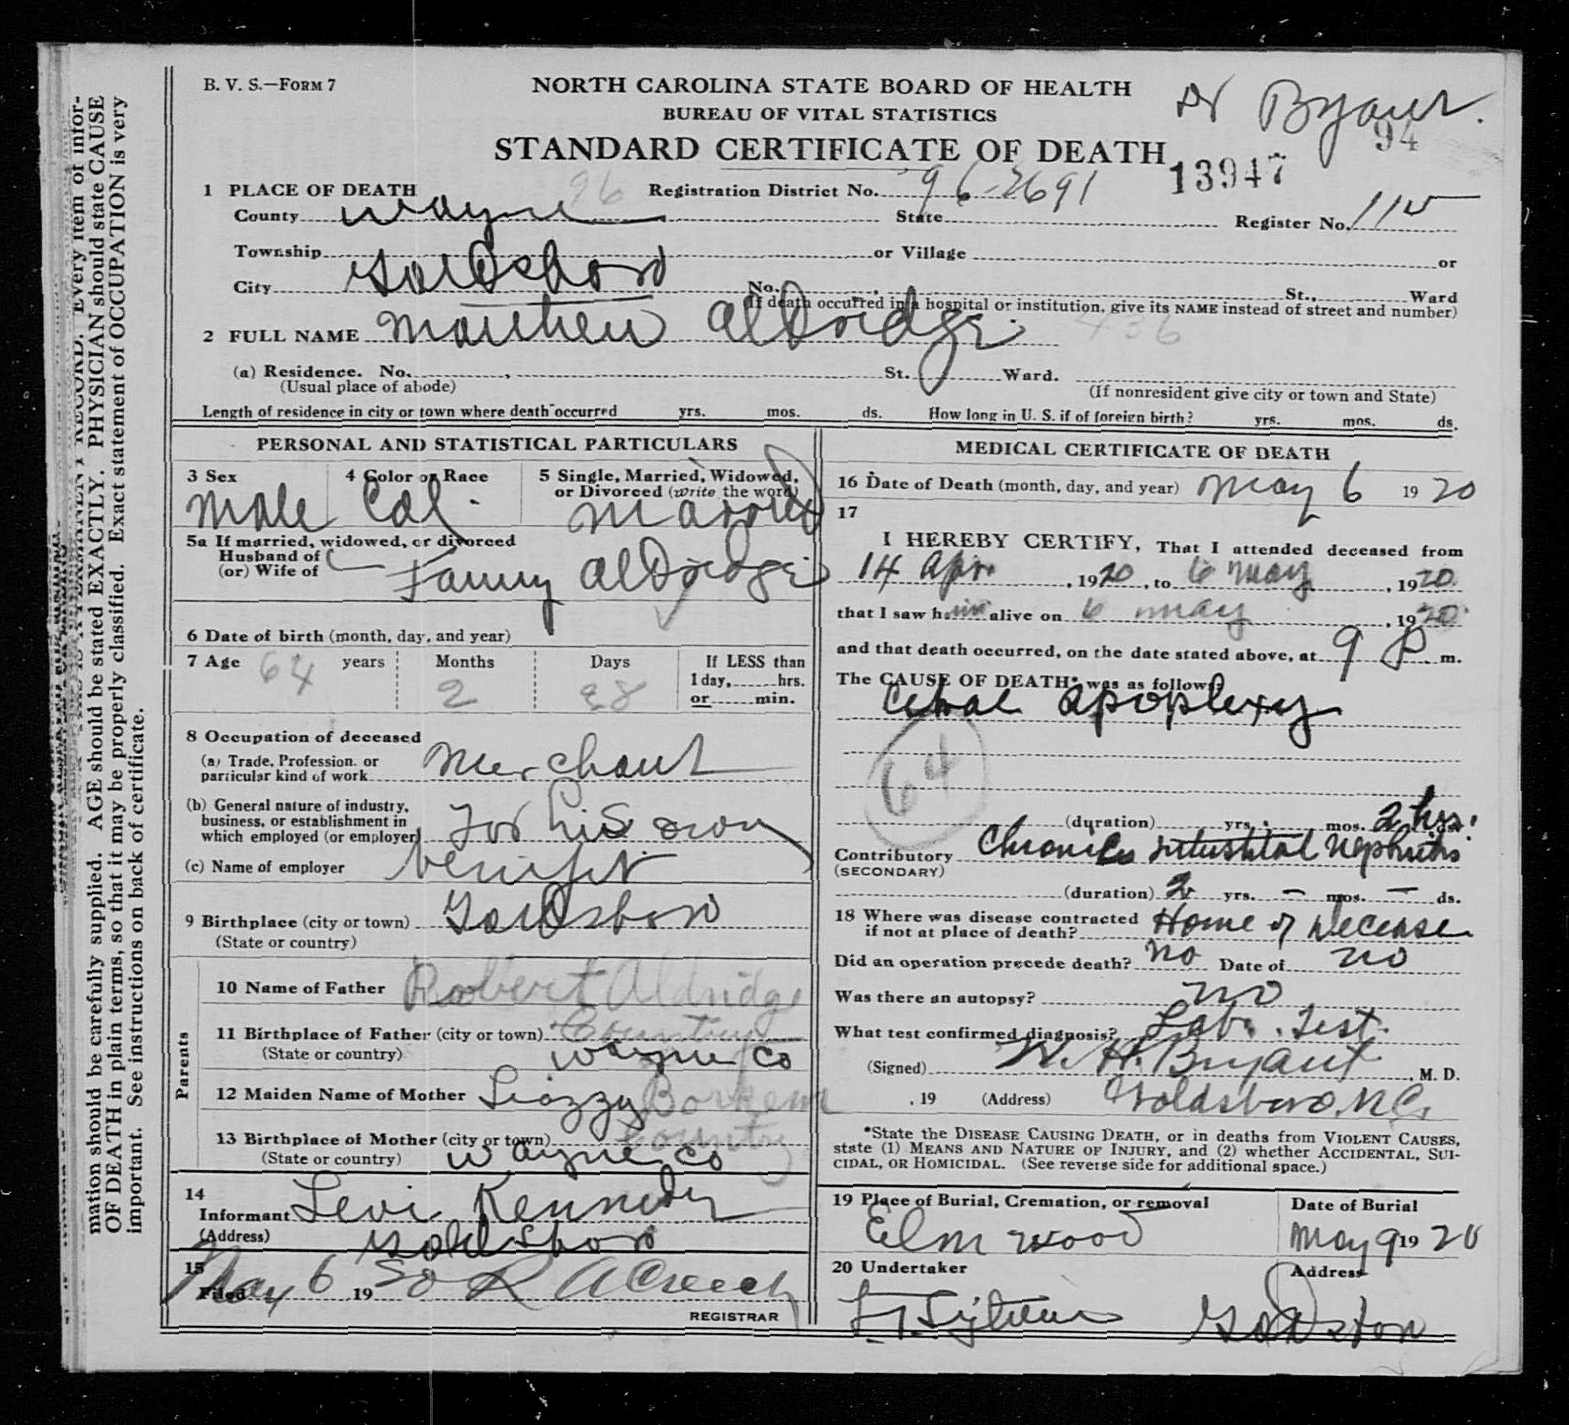 B. V. S.—FORM 7
NORTH CAROLINA STATE BOARD OF HEALTH
BUREAU OF VITAL STATISTICS
STANDARD CERTIFICATE OF DEATH
Dr Bryant.
94
13947
1 PLACE OF DEATH 96 Registration District No. 96-2691
County Wayne State Register No. 115
Township or Village or
City Goldsboro No. St., Ward
(If death occurred in a hospital or institution, give its NAME instead of street and number)
2 FULL NAME Matthew Aldridge 436
(a) Residence. No. , St. Ward.
(Usual place of abode) (If nonresident give city or town and State)
Length of residence in city or town where death occurred yrs. mos. ds. How long in U. S. if of foreign birth? yrs. mos. ds.
PERSONAL AND STATISTICAL PARTICULARS
3 Sex 4 Color or Race 5 Single, Married, Widowed,
or Divorced (write the word)
Male Col. Married
5a If married, widowed, or divorced
Husband of
(or) Wife of Fanny Aldridge
6 Date of birth (month, day, and year)
7 Age 64 years Months 2 Days 28 If LESS than
1 day, hrs.
or min.
8 Occupation of deceased
(a) Trade, Profession. or
particular kind of work Merchant
(b) General nature of industry,
business, or establishment in
which employed (or employer) For his own
(c) Name of employer benifit
9 Birthplace (city or town) Goldsboro
(State or country)
Parents
10 Name of Father Robert Aldridge
11 Birthplace of Father (city or town) Country
(State or country) Wayne Co
12 Maiden Name of Mother
13 Birthplace of Mother (city or town) Country
(State or country) Wayne Co
14
Informant Levi Kennedy
(Address) Goldsboro
15
Filed May 6 1920 R A Creech
REGISTRAR
MEDICAL CERTIFICATE OF DEATH
16 Date of Death (month, day, and year) May 6 1920
17
I HEREBY CERTIFY, That I attended deceased from
14 Apr. , 1920, to 6 May , 1920
that I saw him alive on 6 May , 1920
and that death occurred, on the date stated above, at 9 P m.
The CAUSE OF DEATH* was as follows:
apoplexy
64
(duration) yrs. mos. 2 hrs.
Contributory Chronic Nephritis
(SECONDARY)
(duration) 2 yrs. – mos. – ds.
18 Where was disease contracted
if not at place of death? Home of
Did an operation precede death? No Date of no
Was there an autopsy? no
What test confirmed diagnosis? Lab. Test.
(Signed) W. H. Bryant , M. D.
, 19 (Address) Goldsboro, N.C.
*State the DISEASE CAUSING DEATH, or in deaths from VIOLENT CAUSES,
state (1) MEANS AND NATURE OF INJURY, and (2) whether ACCIDENTAL, SUI-
CIDAL, OR HOMICIDAL. (See reverse side for additional space.)
19 Place of Burial, Cremation, or removal Date of Burial
Elmwood May 9 1920
20 Undertaker Address
mation should be carefully supplied. AGE should be stated EXACTLY. PHYSICIAN should state CAUSE
OF DEATH in plain terms, so that it may be properly classified. Exact statement of OCCUPATION is very
important. See instructions on back of certificate.